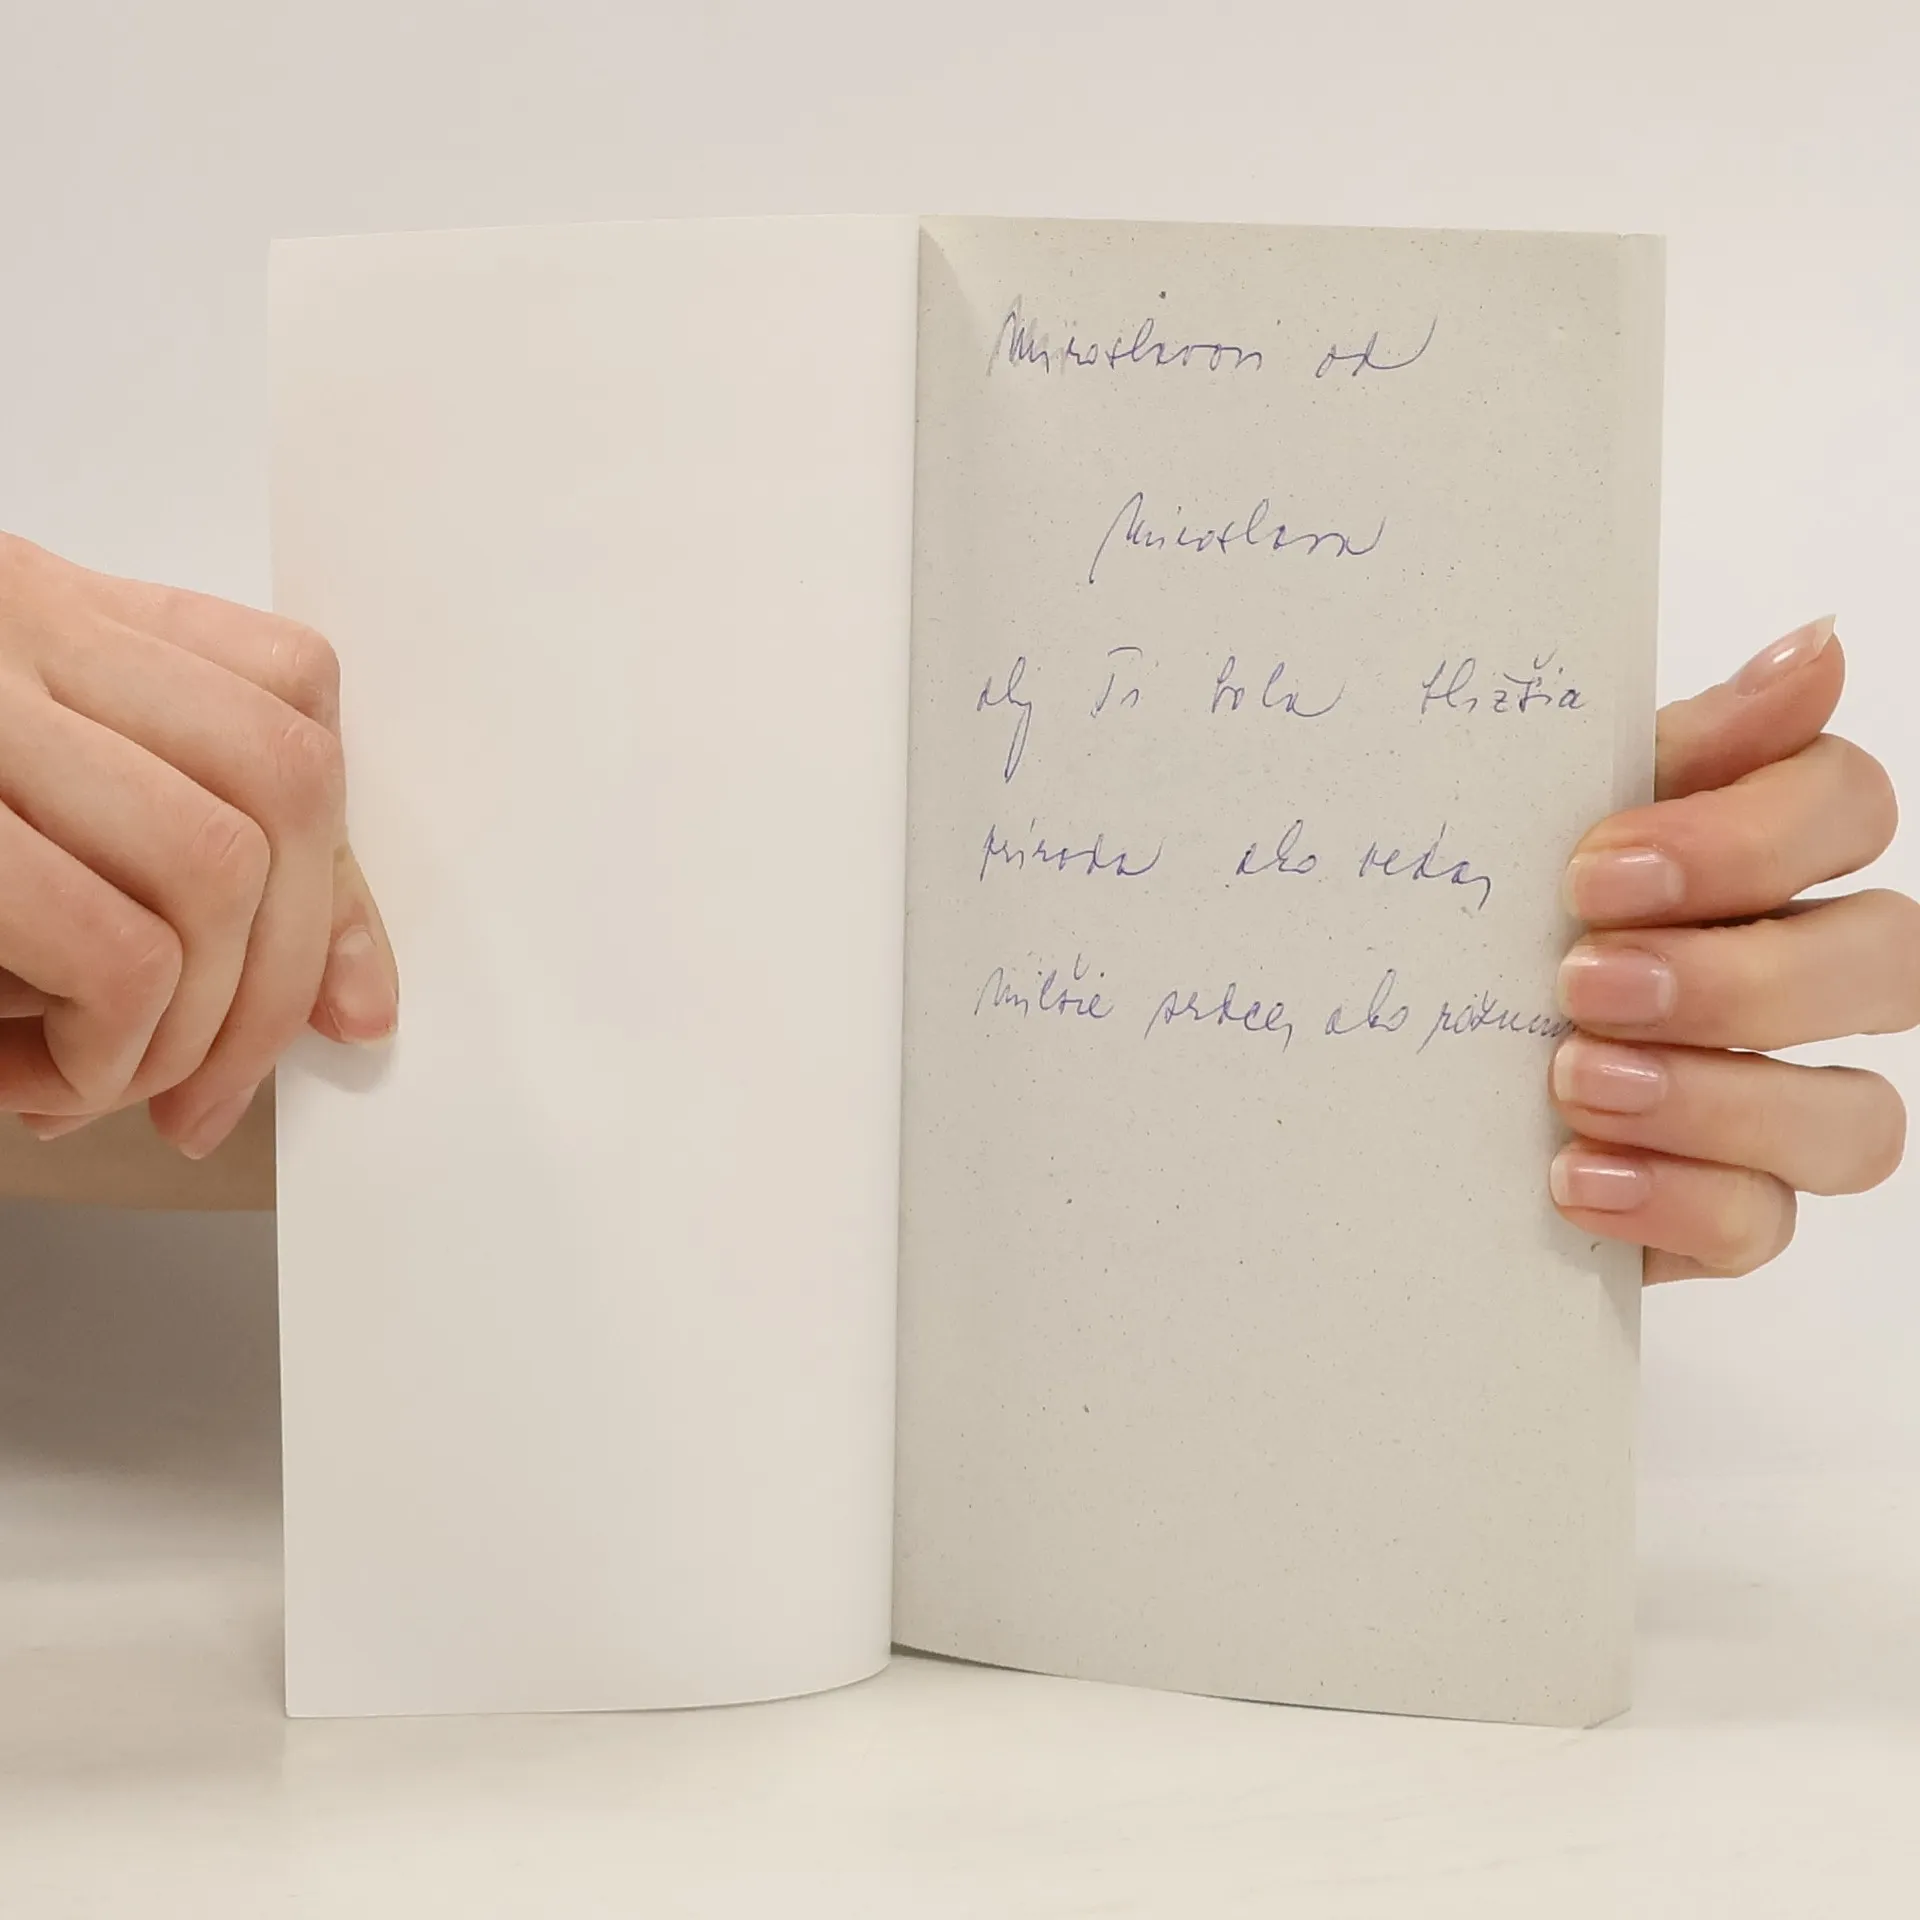 Miroslavovi od
Miroslava
aby Ti bola bližšia
príroda ako veda,
milšie srdce, ako rozum